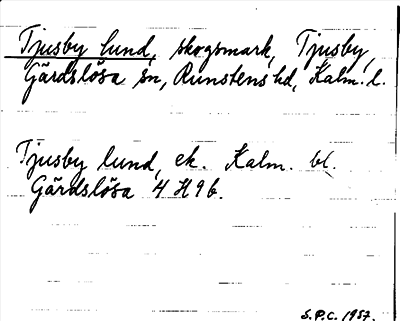 Tjusby lund, skogsmark, Tjusby,
Gärdslösa sn, Runstens hd, Kalm. l.
Tjusby lund, ek. Kalm. bl.
Gärdslösa 4 H 9 b.
S.P.C. 1957.